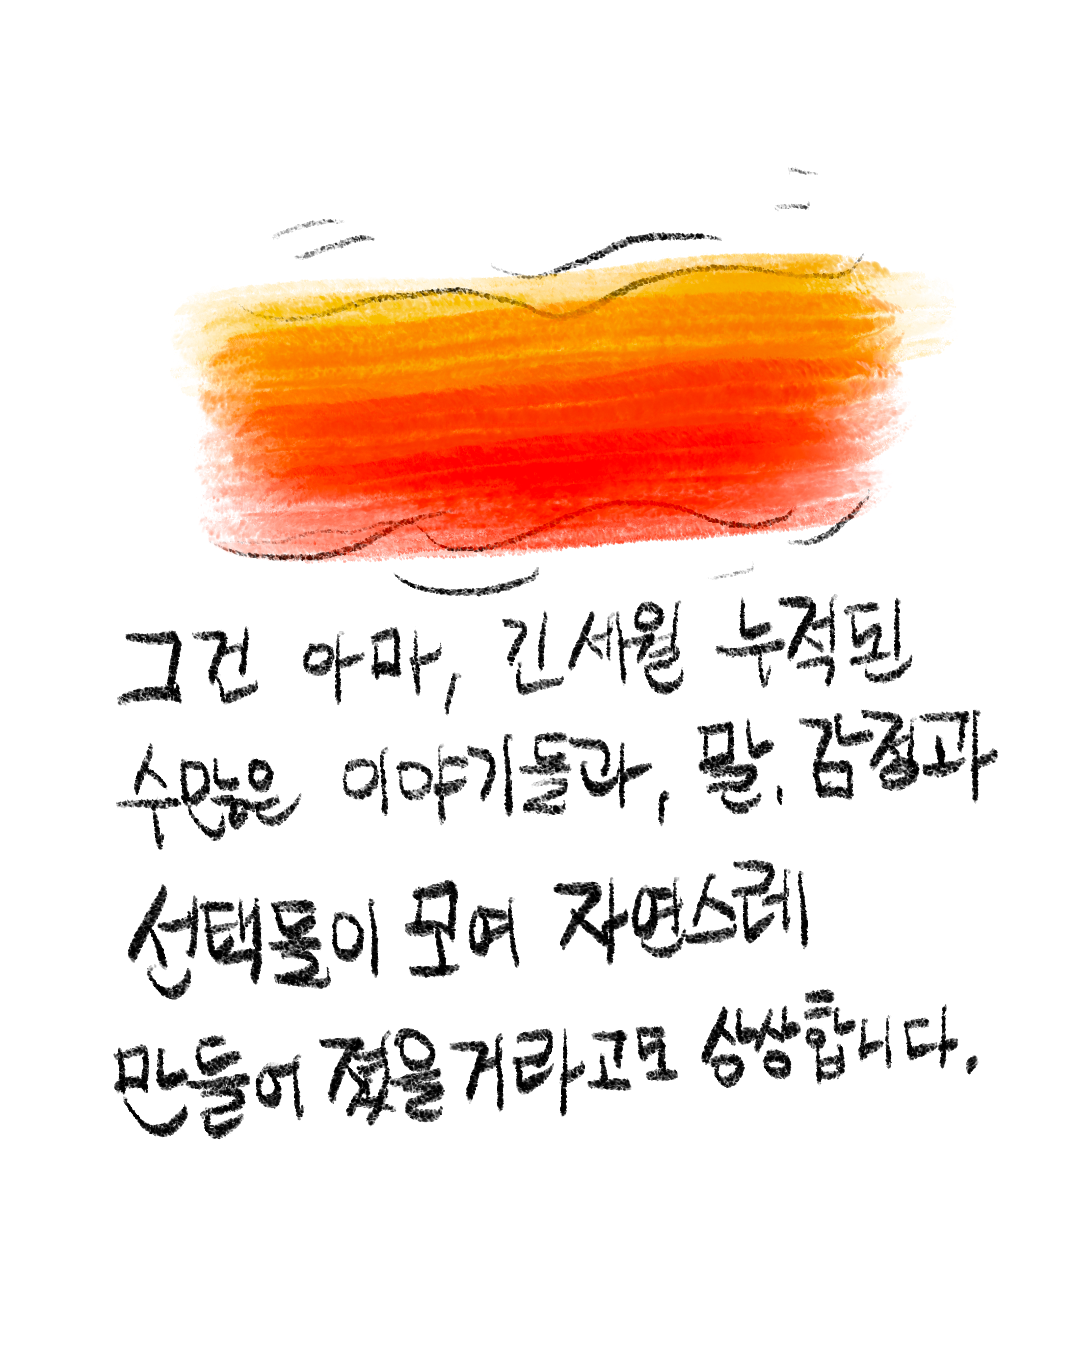 그건 아마, 긴 세월 누적된
수많은 이야기들과, 말, 감정과
선택들이 모여 자연스레
만들어 졌을거라고도 상상합니다.